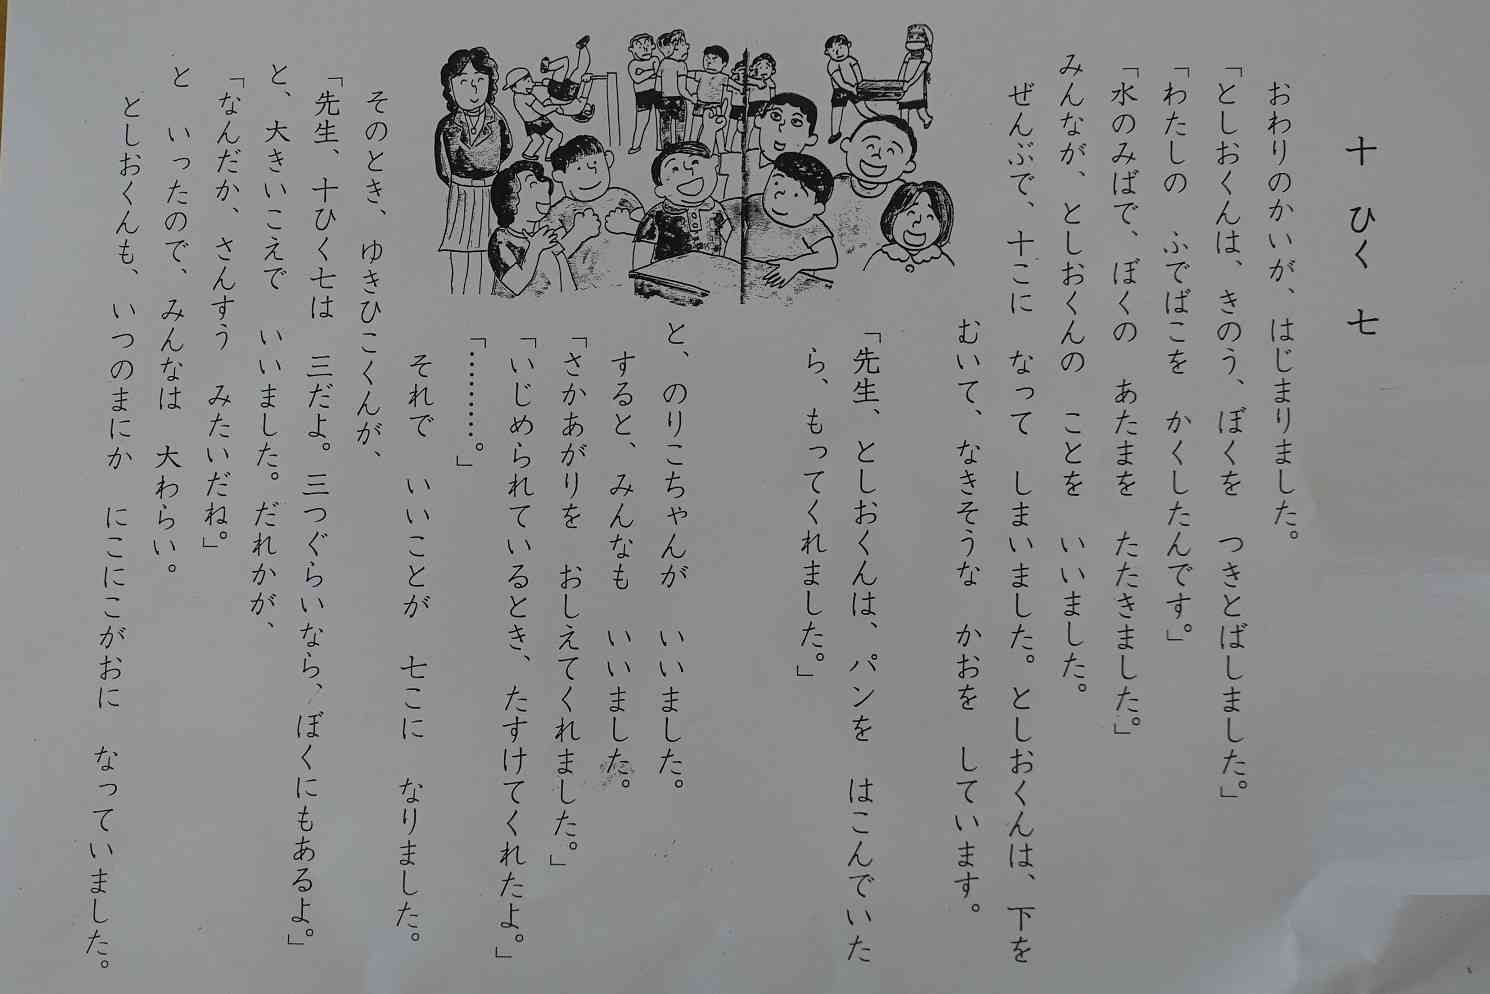 十 ひく 七
おわりのかいが、はじまりました。
「としおくんは、きのう、ぼくを つきとばしました。」
「わたしの ふでばこを かくしたんです。」
「水のみばで、ぼくの あたまを たたきました。」
みんなが、としおくんの ことを いいました。
ぜんぶで、十こに なって しまいました。としおくんは、下を
むいて、なきそうな かおを しています。
「先生、としおくんは、パンを はこんでいた
ら、もってくれました。」
と、のりこちゃんが いいました。
すると、みんなも いいました。
「さかあがりを おしえてくれました。」
「いじめられているとき、たすけてくれたよ。」
「………。」
それで いいことが 七こに なりました。
そのとき、ゆきひこくんが、
「先生、十ひく七は 三だよ。三つぐらいなら、ぼくにもあるよ。」
と、大きいこえで いいました。だれかが、
「なんだか、さんすう みたいだね。」
と いったので、みんなは 大わらい。
としおくんも、いつのまにか にこにこがおに なっていました。